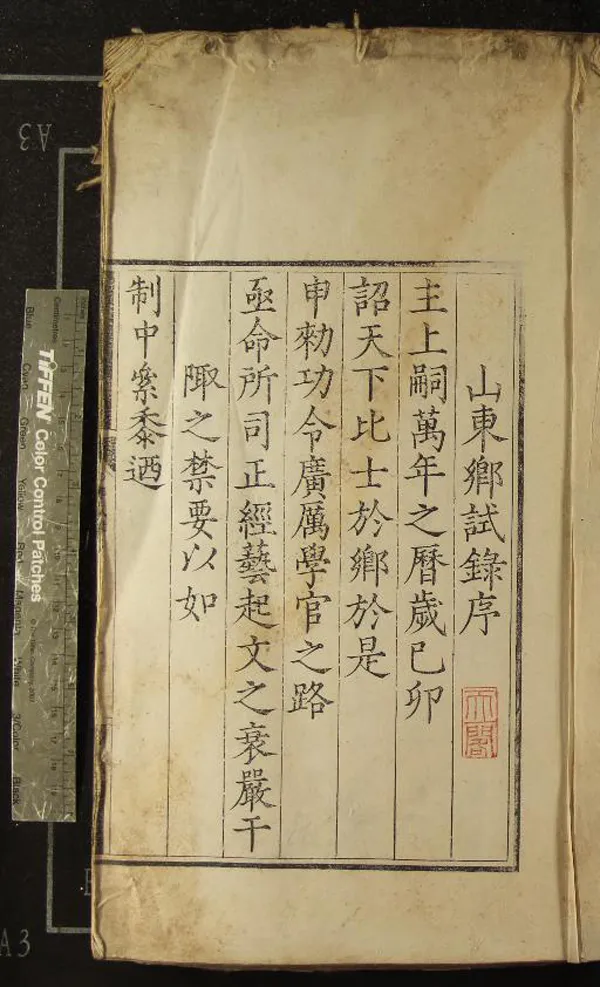 山東鄉試錄序
天閣
主上嗣萬年之曆歲己卯
詔天下比士於鄉於是
申勑功令廣厲學官之路
亟命所司正經藝起文之衰嚴干
陬之禁要以如
制中絫黍迺
A3
A3
TIFFEN Color Control Patches
Blue
Cyan
Green
Yellow
Red
Magenta
White
3/Color
Black
Centimetres